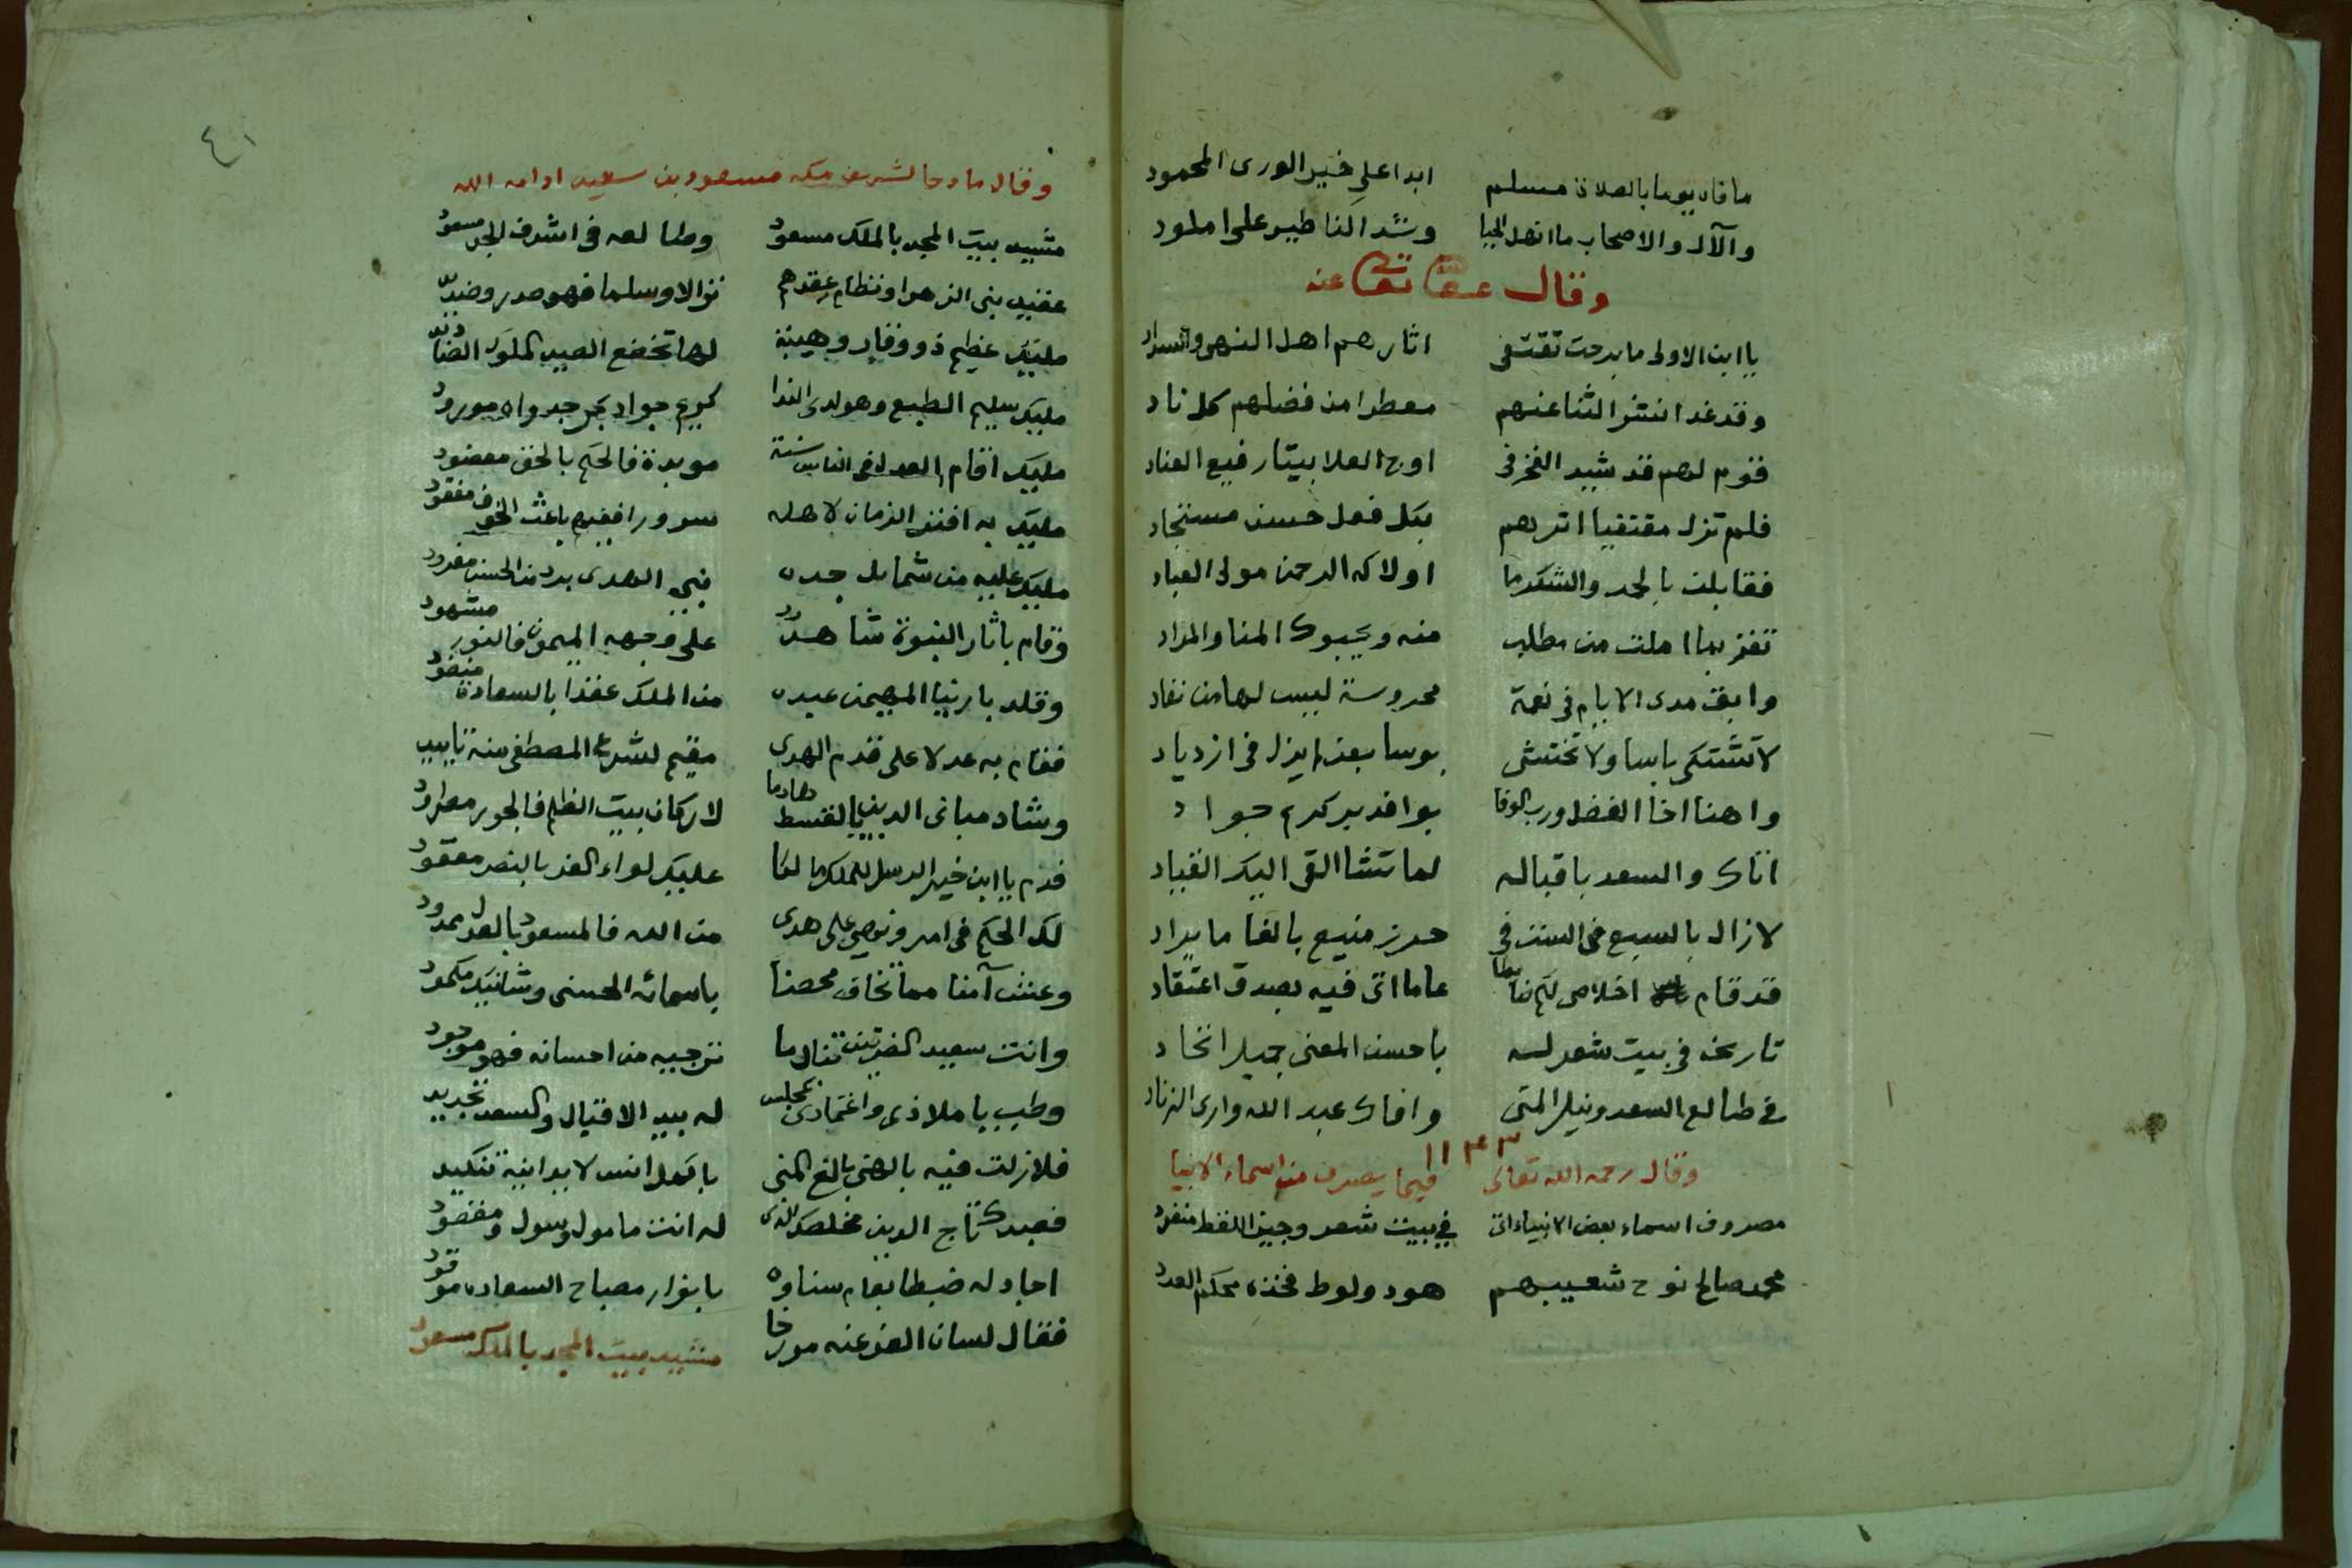 ما فاه يوما بالصلاة مسلم ابدا على خير الورى المحمود
والآل والاصحاب ما انهل الحيا وشدا لنا طير على املود
وقال عفى الله تعالى عنه
يا ابن الاولى ما برحت تقتفى اثارهم اهل النهى والسداد
وقد غدا نشر الثنا عنهم معطرا من فضلهم كل ناد
قوم لهم قد شيد الفخر فى اوج العلا بيتا رفيع العماد
فلم تزل مقتفيا اثرهم بكل فعل حسن مستجاد
فقابلن بالحمد والشكر ما اولاكه الرحمن مولى العباد
تفز بما املت من مطلب منه ويحبوك المنا والمراد
وابق مدى الايام فى نعمة محروسة ليس لها من نفاد
لا تشتكى باسا ولا تختشى بوسا بعز لم يزل فى ازدياد
واهنا اخا الفضل ورب الوفا بوافد بر كريم جواد
اتاك والسعد باقباله لما تشا القى اليك القياد
لا زال بالسبع فى الست فى حرز منيع بالغا ما يراد
قد قام اخلاص لكم ضابطا عاما اتى فيه بصدق اعتقاد
تاريخه فى بيت شعر له باحسن المعنى جميلا اتحاد
فى طالع السعد ونيل المنى وافاك عبد الله وارى الزناد
١١٤٣
وقال رحمه الله تعالى فيما يصرف من اسماء الانبيا
مصروف اسماء بعض الانبياء اتى فى بيت شعر وجيز اللفظ منفرد
محمد صالح نوح شعيبهم هود ولوط فخذه محكم العدد
٤١
وقال مادحا لشريف مكه مسعود بن سعيد ادامه الله
مشيد بيت المجد بالملك مسعود وطالعه فى اشرف الجد مسعود
عقيد بنى الزهرا ونظام عقدهم نوالا وسلما فهو صدر وصنديد
مليك عظيم ذو وقار وهيبة لها تخضع الصيد الملوك الصناديد
مليك سليم الطبع وهو لدى الندا كريم جواد بحر جدواه مورود
مليك اقام العدل فى الناس سنة موبدة فالحكم بالحق معضود
مليك به افتر الزمان لاهله سرورا ففيهم باعث الخوف مفقود
مليك عليه من شمايل جده نبى الهدى برد من الحسن مفرود
وقام باثار النبوة شاهد على وجهه الميمون فالنور مشهود
وقلد بارينا المهيمن عبده من الملك عقدا بالسعادة منضود
فقام به عدلا على قدم الهدى مقيم لشرع المصطفى منه تاييد
وشاد مبانى الدين بالقسط هادما لاركان بيت الظلم فالجور مطرود
فدم يا ابن خير الرسل للملك مالكا عليك لواء العز بالنصر معقود
لك الحكم فى امر ونهى على هدى من الله فالمسعود بالعدل ممدود
وعش آمنا مما تخاف محصنا باسمائه الحسنى وشانيك مكمود
وانت سعيد القريتين تنال ما ترجيه من احسانه فهو موجود
وطب يا ملاذى واعتمادى بمجلس له بيد الاقبال والسعد تجديد
فلا زلت فيه بالهنى بالغ المنى باكمل انس لا يدانيه تنكيد
فعبدك تاج الدين مخلصك الذى له انت مامول وسول ومقصود
اجاد له ضبطا بعام سناوه بانوار مصباح السعاده موقود
فقال لسان العز عنه مورخا مشيد بيت المجد بالملك مسعود